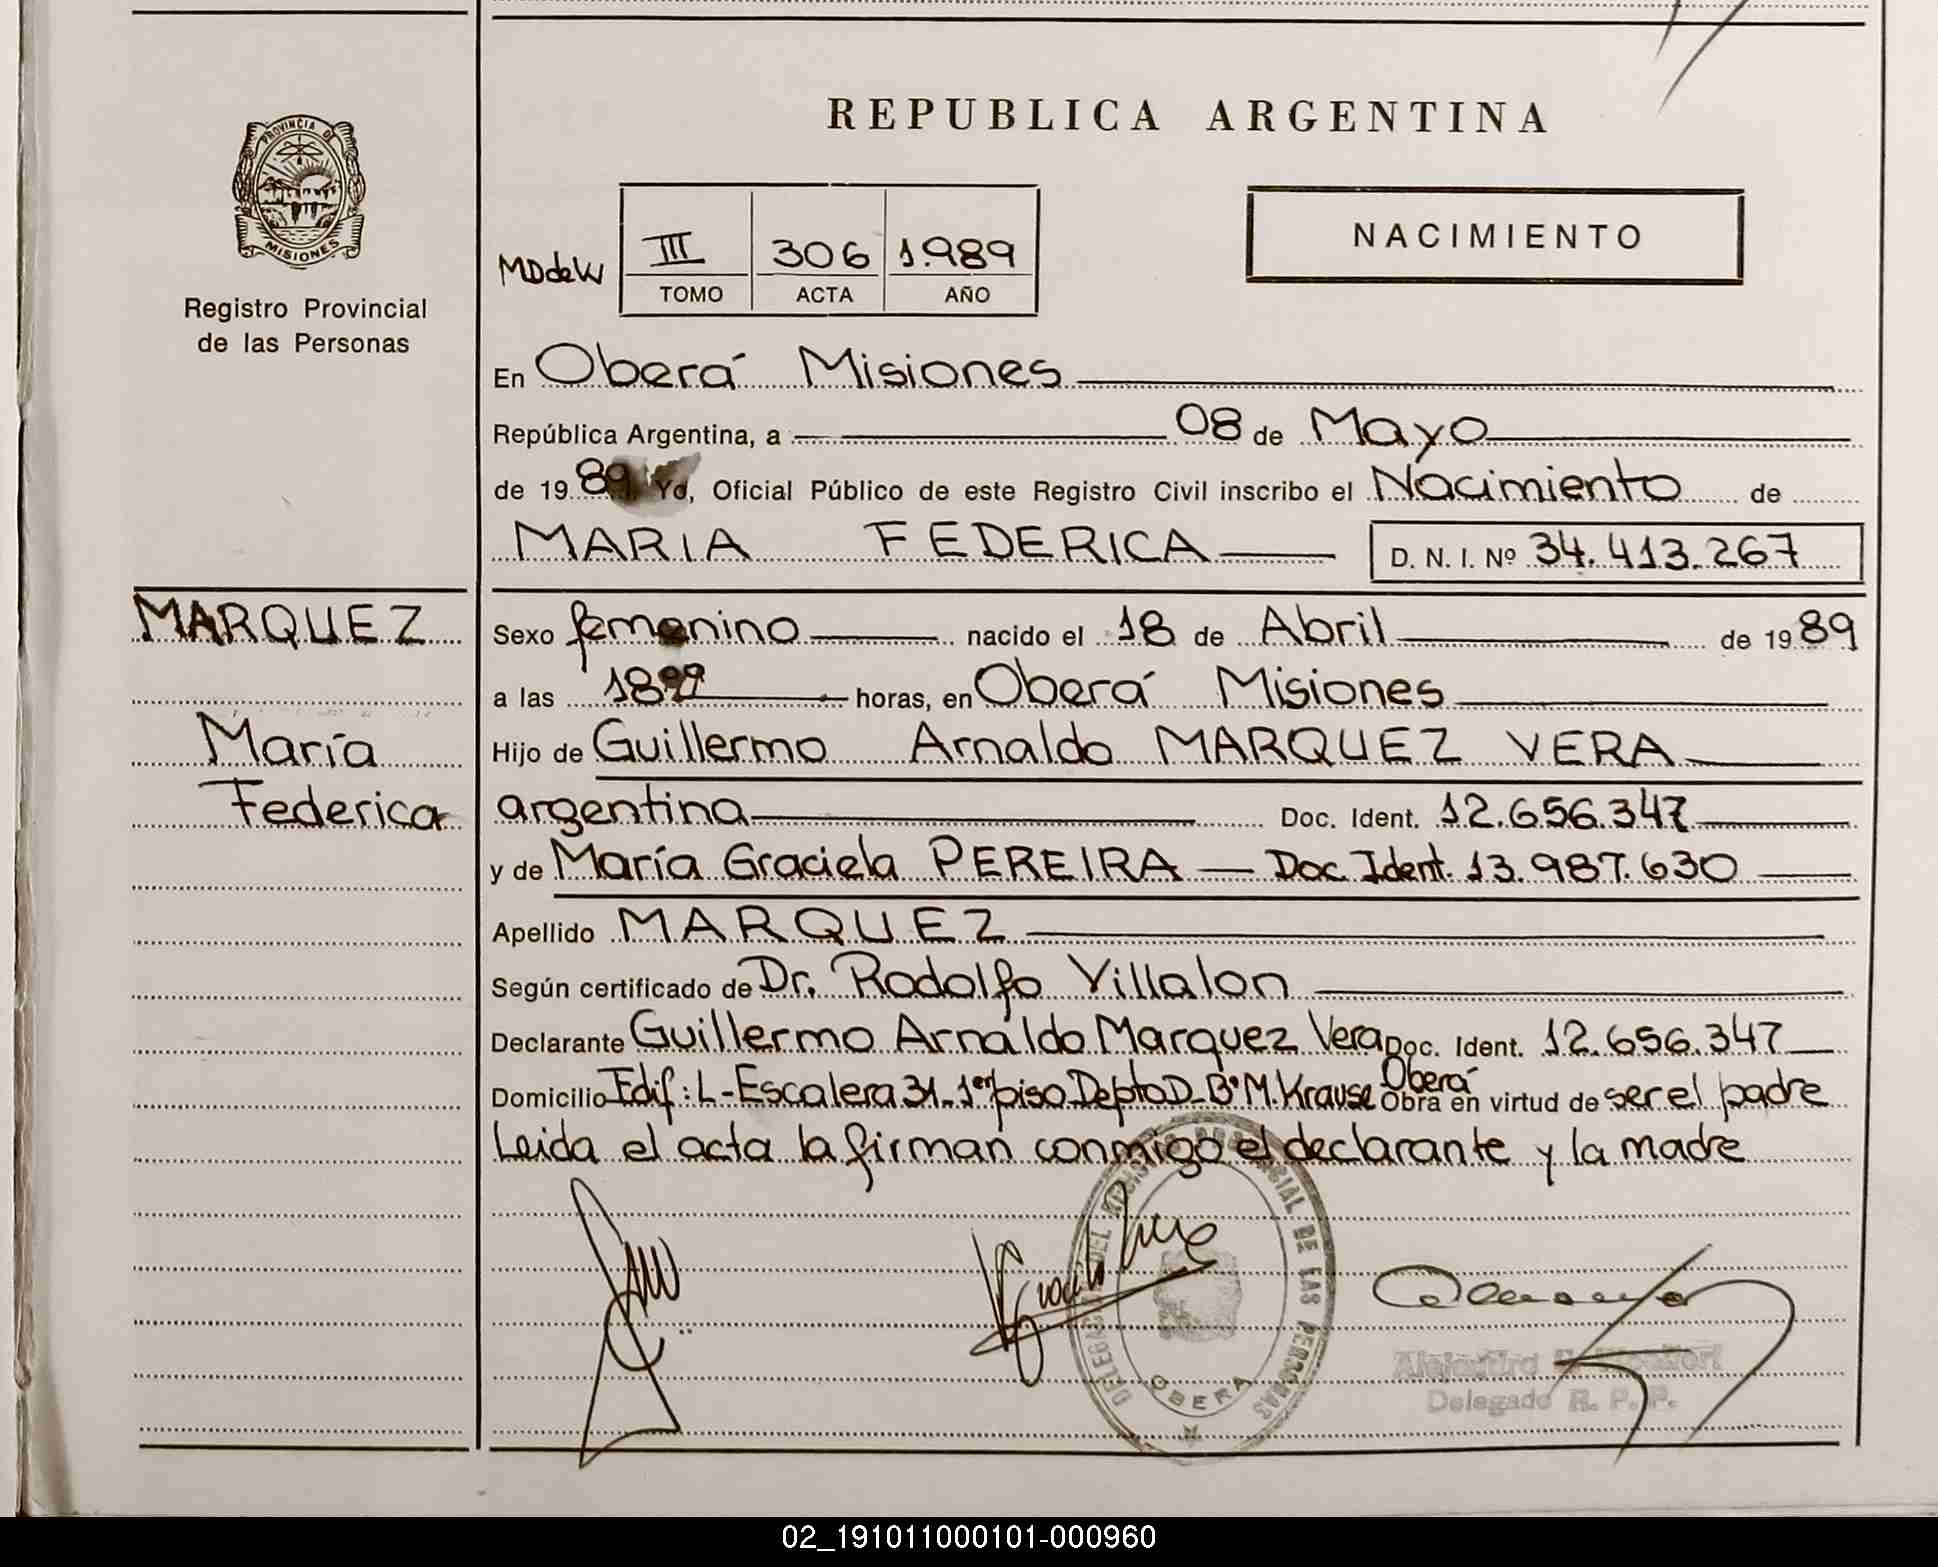 PROVINCIA DE
MISIONES
Registro Provincial
de las Personas
MARQUEZ
María
Federica
REPUBLICA ARGENTINA
NACIMIENTO
MDdeW
III 306 1.989
TOMO ACTA AÑO
En Oberá Misiones
República Argentina, a 08 de Mayo
de 1989 Yo, Oficial Público de este Registro Civil inscribo el Nacimiento de
MARIA FEDERICA D. N. I. Nº 34.413.267
Sexo femenino nacido el 18 de Abril de 1989
a las horas, en Oberá Misiones
Hijo de Guillermo Arnaldo MARQUEZ VERA
argentina Doc. Ident. 12.656.347
y de María Graciela PEREIRA — Doc. Ident. 13.987.630
Apellido MARQUEZ
Según certificado de Dr. Rodolfo Villalon
Declarante Guillermo Arnaldo Marquez Vera Doc. Ident. 12.656.347
Domicilio Edif: L-Escalera 31-1er piso Depto D-B° M. Krause Oberá Obra en virtud de ser el padre
Leida el acta la firman conmigo el declarante y la madre
DELEGADO DEL REGISTRO PROVINCIAL DE LAS PERSONAS
OBERA
Delegado R. P. P.
02_191011000101-000960